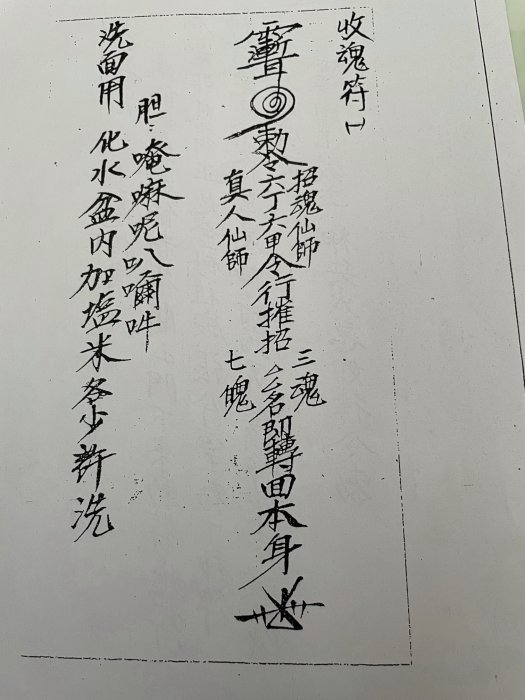 收魂符㈠
勅令六丁六甲令行摧招△名即轉回本身
招魂仙師 三魂
真人仙師 七魄
胆：唵嘛呢叭囒吽
洗面用 化水盆内加塩米各少許洗